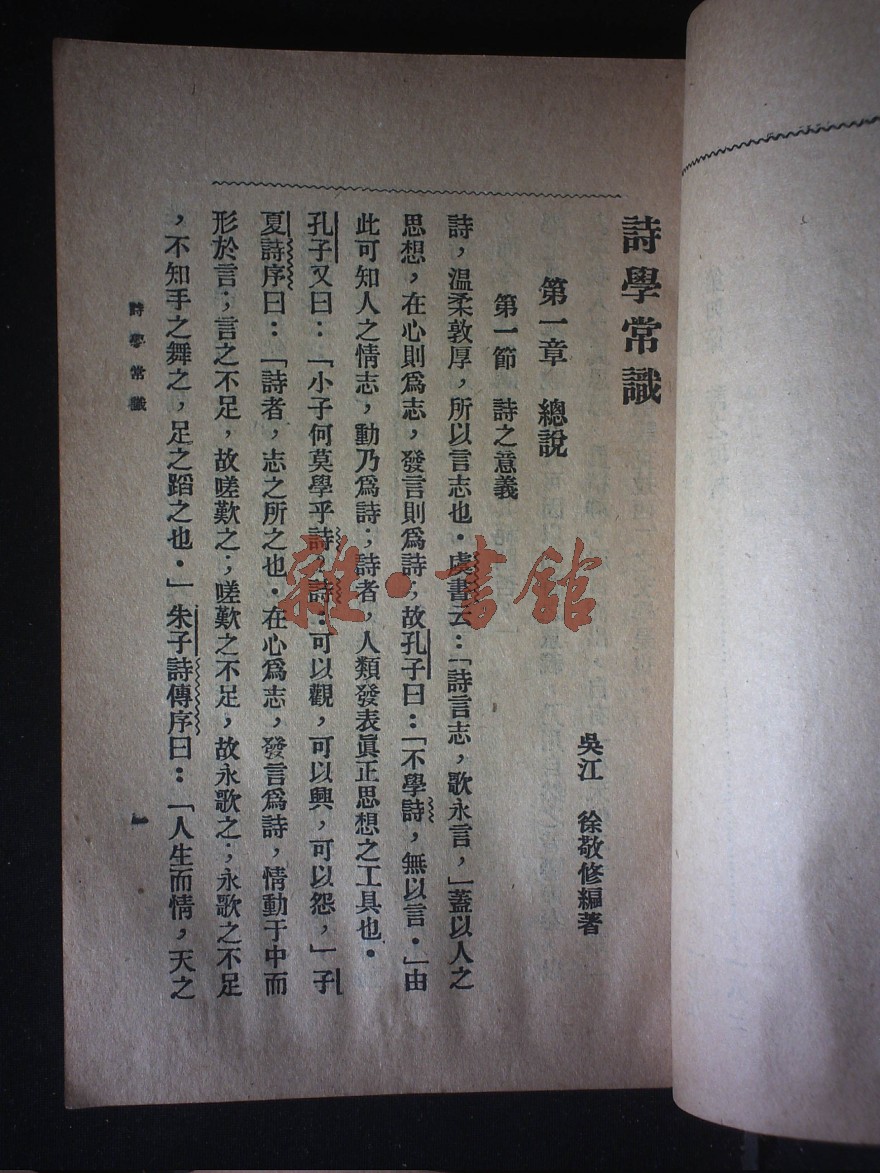 詩學常識
吳江　徐敬修編著
第一章　總說
第一節　詩之意義
詩，溫柔敦厚，所以言志也．虞書云：「詩言志，歌永言，」蓋以人之
思想，在心則爲志，發言則爲詩；故孔子曰：「不學詩，無以言．」由
此可知人之情志，動乃爲詩；詩者，人類發表眞正思想之工具也．
孔子又曰：「小子何莫學乎詩？詩：可以觀，可以興，可以怨，」子
夏詩序曰：「詩者，志之所之也．在心爲志，發言爲詩，情動于中而
形於言；言之不足，故嗟歎之；嗟歎之不足，故永歌之；永歌之不足
，不知手之舞之，足之蹈之也．」朱子詩傳序曰：「人生而情，天之
詩學常識
一
雜·書館